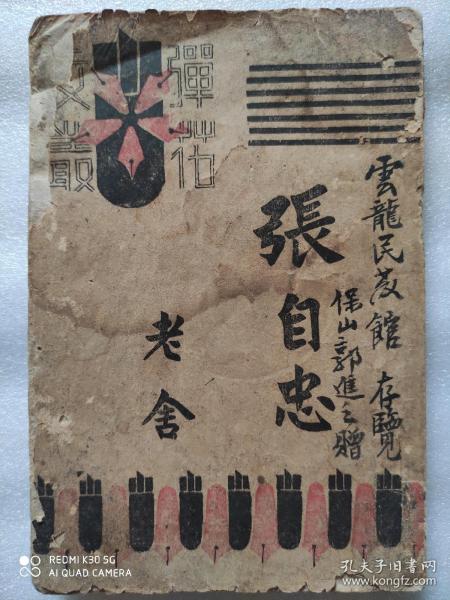 彈花
文叢
張自忠
老舍
雲龍民教館 存覽
保山郭進之贈
REDMI K30 5G
AI QUAD CAMERA
孔夫子旧书网
www.kongfz.com